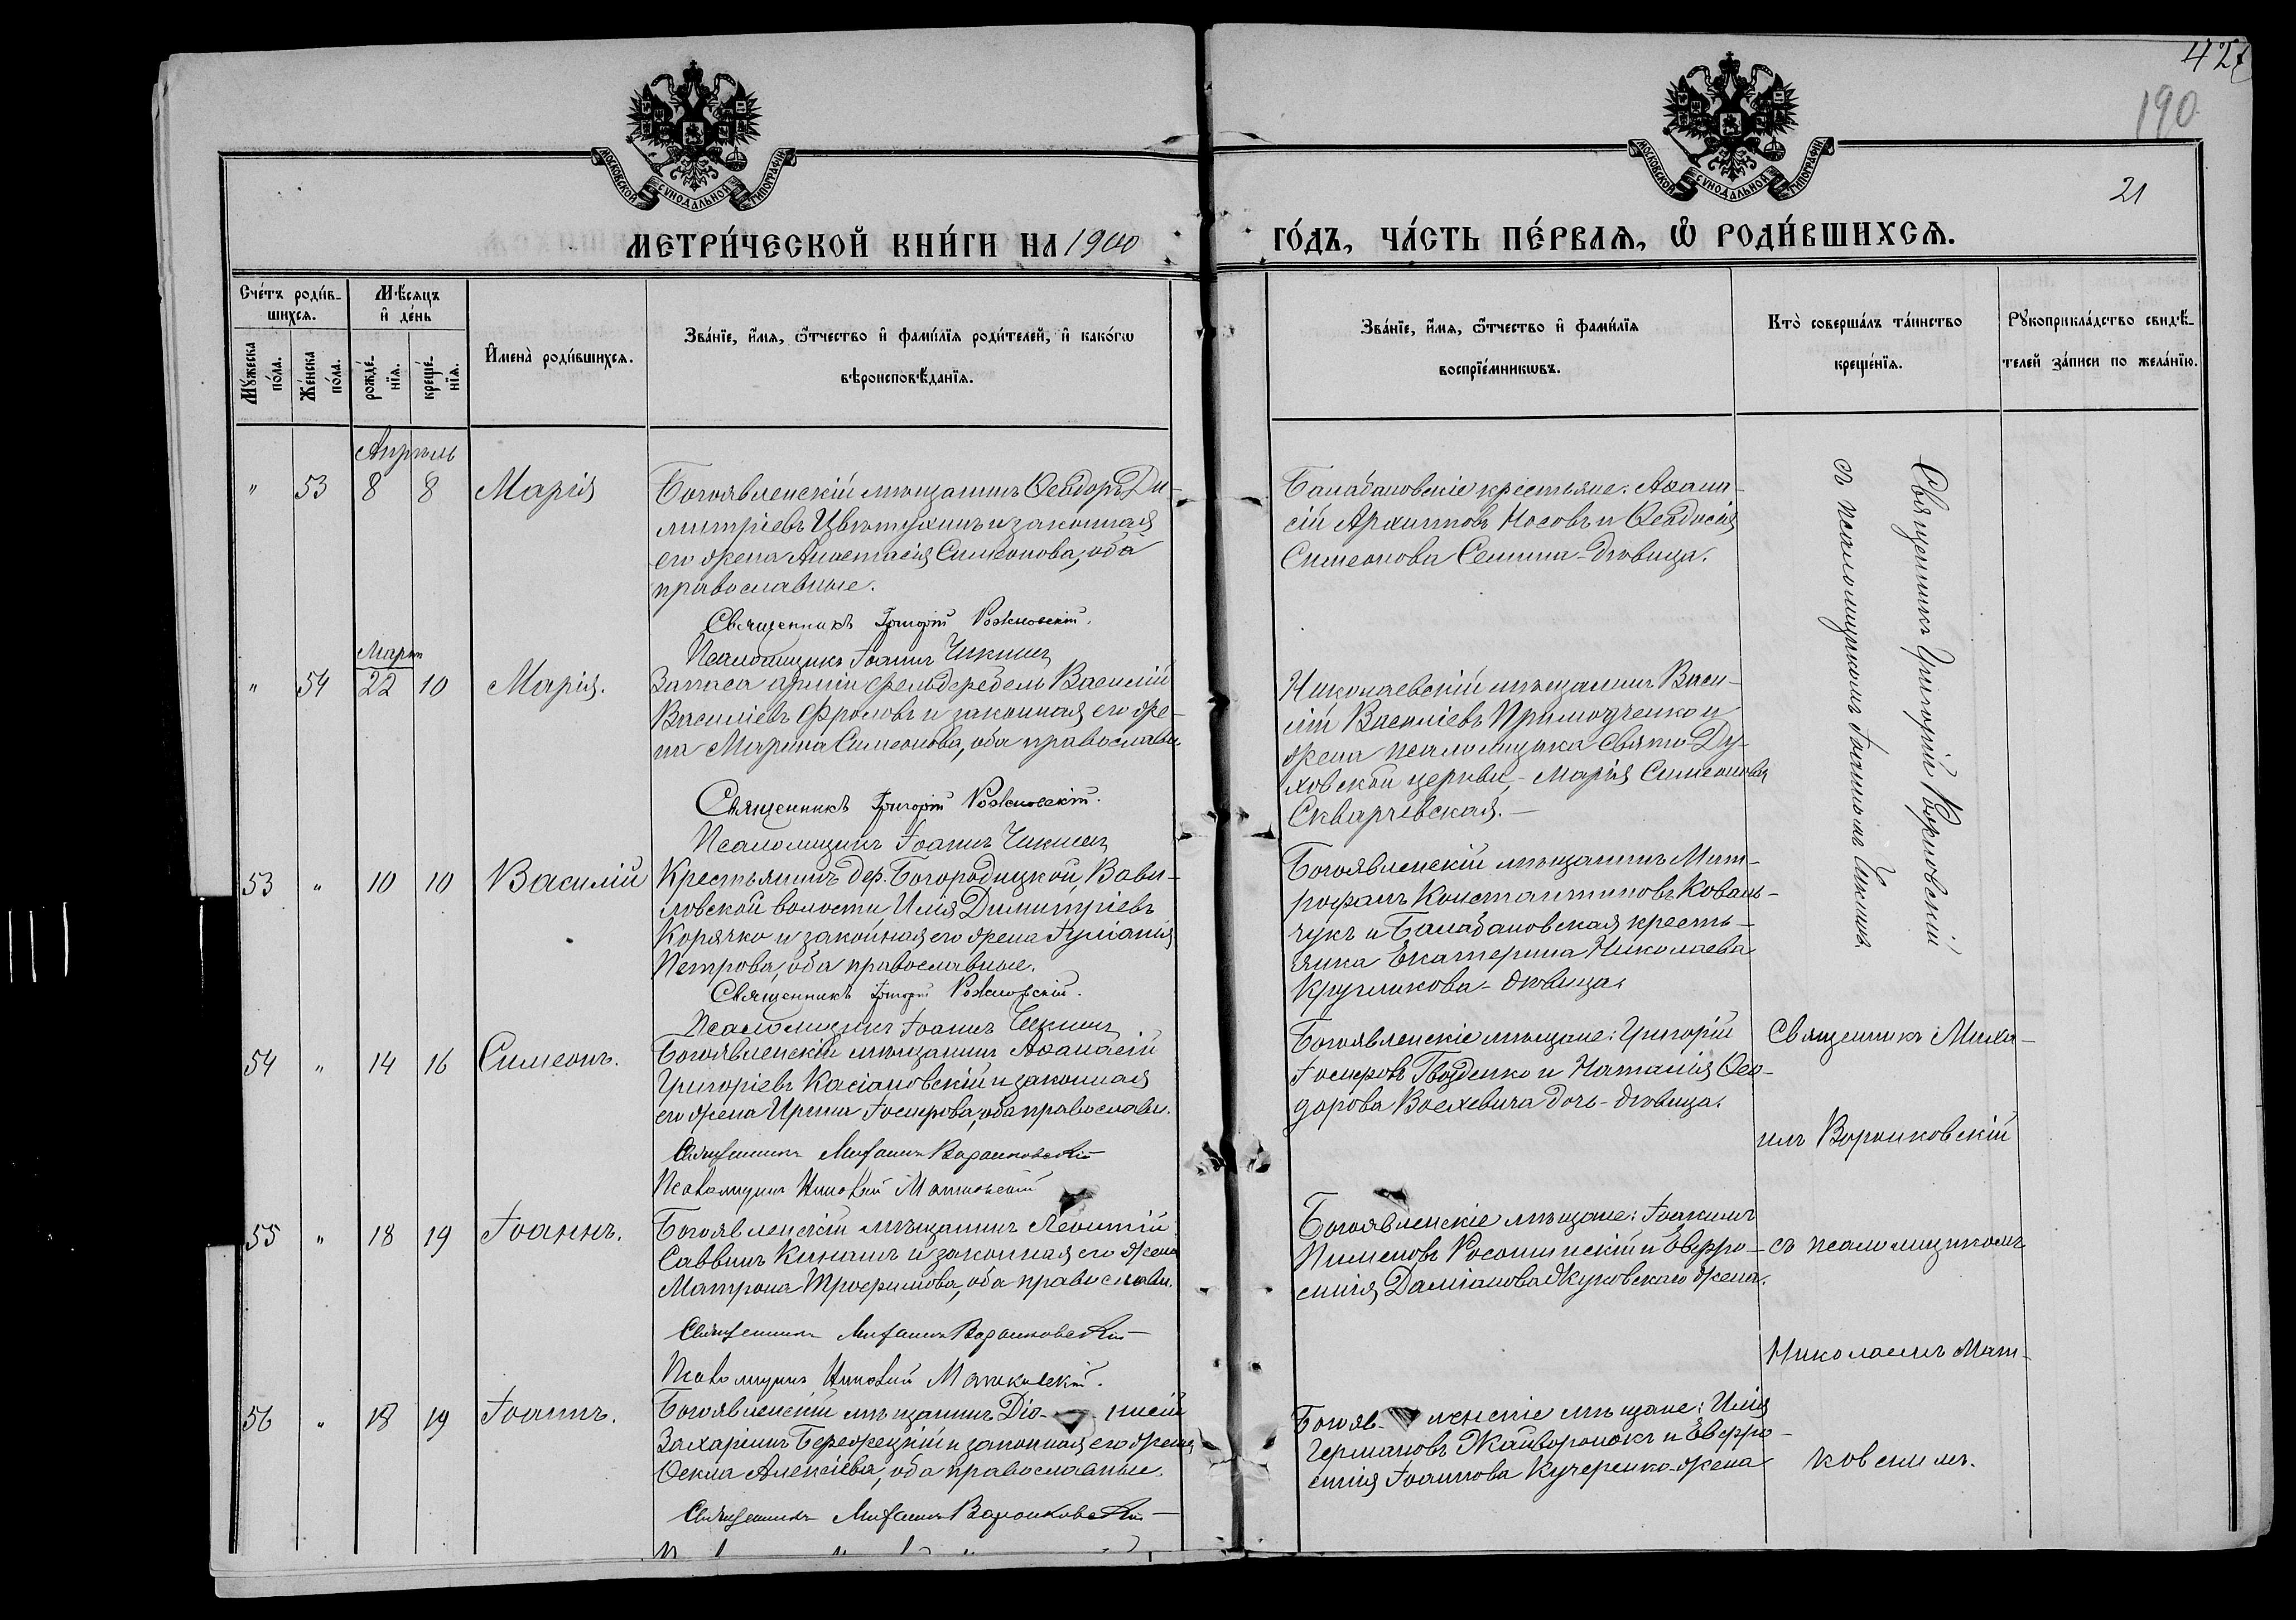 427
190
21
МОСКОВСКОЙ СѴНОДАЛЬНОЙ ТИПОГРАФІИ
МОСКОВСКОЙ СѴНОДАЛЬНОЙ ТИПОГРАФІИ
МЕТРИ́ЧЕСКОЙ КНИ́ГИ НА 1900
ГО́ДЪ, ЧА́СТЬ ПЕ́РВАѦ, Ѽ РОДИ́ВШИХСѦ.
Сче́тъ роди́в-
шихсѧ.
Мꙋ́жеска
по́ла.
Же́нска
по́ла.
Мѣ́сѧцъ
и҆ де́нь
рожде́-
нїѧ.
креще́-
нїѧ.
И҆мена̀ роди́вшихсѧ.
Зва́нїе, и҆́мѧ, ѻ҆́тчество и҆ фами́лїѧ роди́телей, и҆ како́гѡ
вѣроисповѣ́данїѧ.
Зва́нїе, и҆́мѧ, ѻ҆́тчество и҆ фами́лїѧ
воспрїе́мникѡвъ.
Кто̀ соверша́лъ та́инство
креще́нїѧ.
Рꙋкоприкла́дство свидѣ́-
телей за́писи по жела́нїю.
Апрѣль
" 53 8 8 Марія
Богоявленскій мѣщанинъ Ѳеодоръ Ди-
митріевъ Цвѣтухинъ и законная
его жена Анастасія Симеонова, оба
православные.
Священникъ Григорій Рожновскій.
Псаломщикъ Іоаннъ Чикинъ
Балабановскіе крестьяне: Аѳана-
сій Архиповъ Носовъ и Ѳеодосія
Симеонова Семина - дѣвица.
Священникъ Григорій Рожновскій
съ псаломщикомъ Іоанномъ Чикинъ.
Мартъ
" 54 22 10 Марія.
Запаса арміи фельдфебель Василій
Василіевъ Фроловъ и законная его же-
на Марина Симеонова, оба православн.
Священникъ Григорій Рожновскій.
Псаломщикъ Іоаннъ Чикинъ
Николаевскій мѣщанинъ Васи-
лій Василіевъ Примодченко и
жена псаломщика Свято-Ду-
ховской церкви, - Марія Симеонова
Скварчевская. -
53 " 10 10 Василій
Крестьянинъ дер. Богородицкой, Вави-
ловской волости, Илія Димитріевъ
Корячко и законная его жена Іуліанія
Петрова, оба православные.
Священникъ Григорій Рожновскій.
Псаломщикъ Іоаннъ Чикинъ
Богоявленскій мѣщанинъ Мит-
рофанъ Константиновъ Коваль-
чукъ и Балабановская кресть-
янка Екатерина Николаева
Кругликова - дѣвица.
54 " 14 16 Симеонъ.
Богоявленскій мѣщанинъ Аѳанасій
Григоріевъ Касіановскій и законная
его жена Ирина Іосифова, оба православн.
Священникъ Михаилъ Воронковскій
Псаломщикъ Николай Матковскій
Богоявленскіе мѣщане: Григорій
Іосифовъ Гвозденко и Наталія Ѳео-
дорова Восхевича дочь - дѣвица.
Священникъ Миха-
илъ Воронковскій
55 " 18 19 Іоаннъ.
Богоявленскій мѣщанинъ Леонтій
Саввинъ Кинашъ и законная его жена
Матрона Трофимова, оба православн.
Священникъ Михаилъ Воронковскій
Псаломщикъ Николай Матковскій.
Богоявленскіе мѣщане: Іоакимъ
Пименовъ Росошинскій и Евфро-
синія Даміанова Жуковскаго жена.
съ псаломщикомъ
Николаемъ Мат-
56 " 18 19 Іоаннъ.
Богоявленскій мѣщанинъ Діо- нисій
Захаріинъ Бережецкій и законная его жена
Ѳекла Алексіева, оба православные.
Священникъ Михаилъ Воронковскій
Богояв- ленскіе мѣщане: Илія
Германовъ Жайворонокъ и Евфро-
синія Іоаннова Кучеренко-жена
ковскимъ.